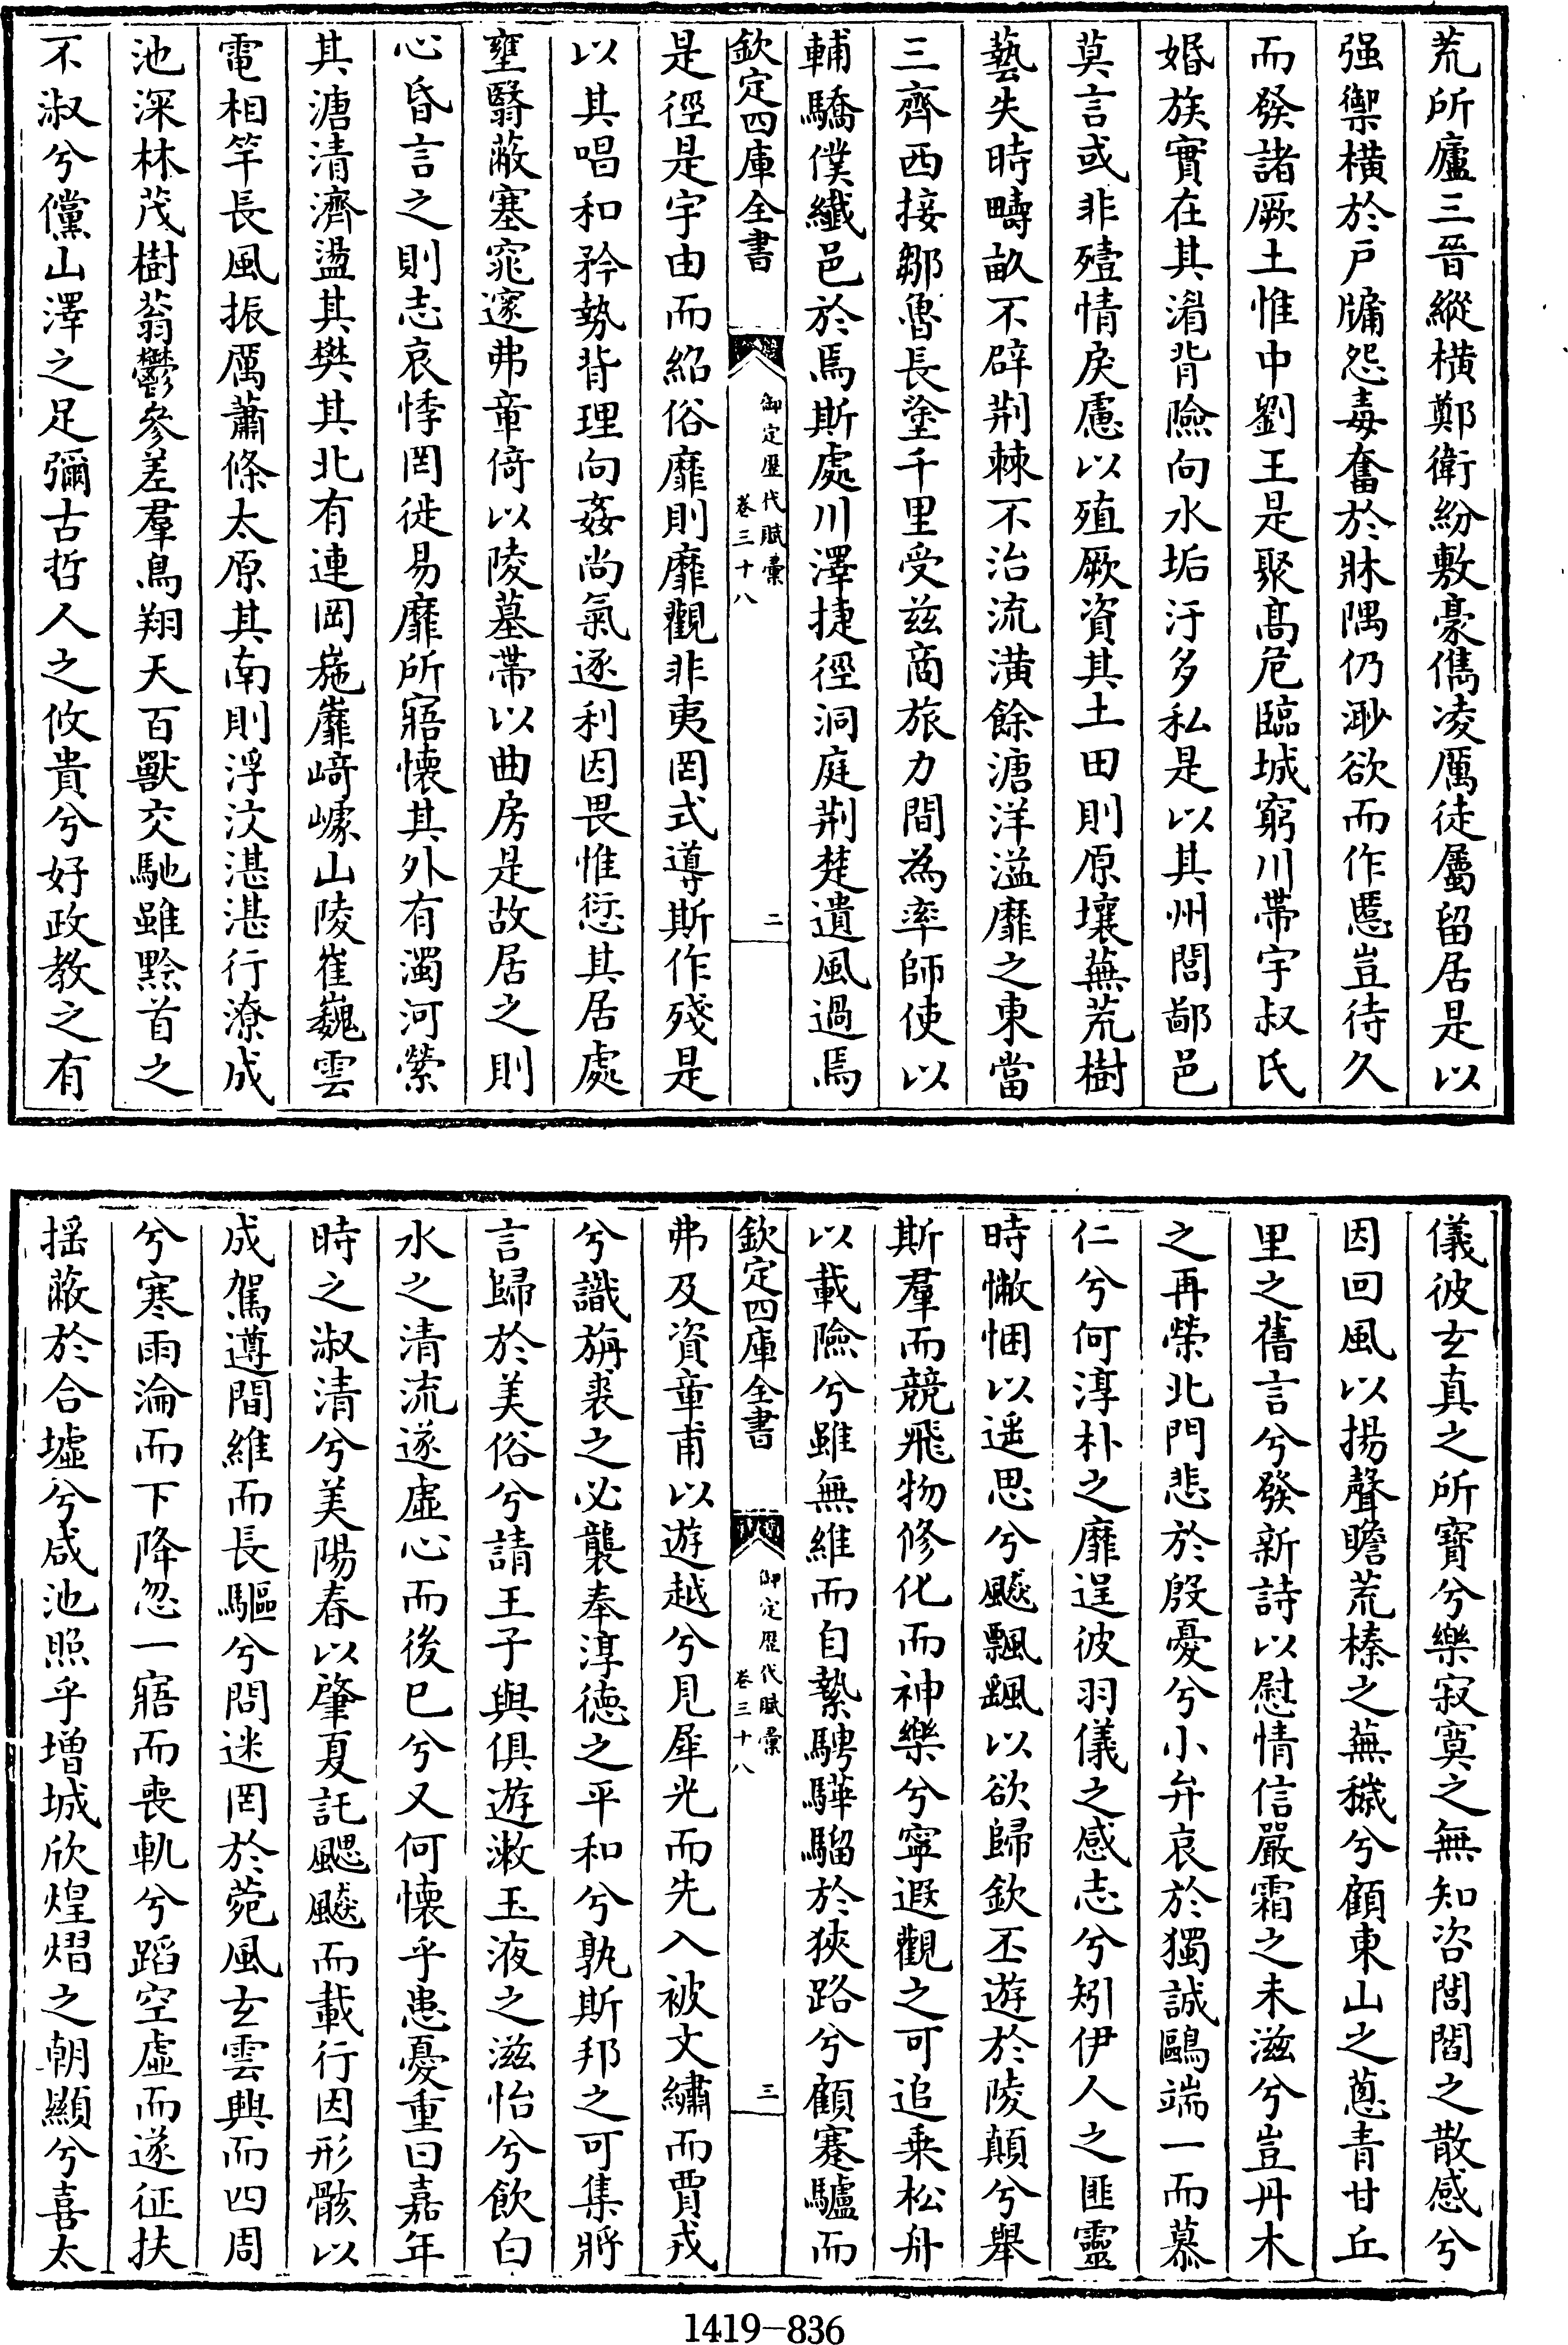 荒所廬三晉縱横鄭衛紛敷豪儁凌厲徒屬留居是以
强禦横於戸牖怨毒奮於牀隅仍渺欲而作慝豈待久
而發諸厥土惟中劉王是聚髙危臨城窮川帶宇叔氏
婚族實在其湄背險向水垢汙多私是以其州閭鄙邑
莫言或非殪情戾慮以殖厥資其土田則原壤蕪荒樹
藝失時疇畝不辟荆棘不治流潢餘溏洋溢靡之東當
三齊西接鄒魯長塗千里受兹商旅力間為率師使以
輔驕僕纎邑於焉斯處川澤捷徑洞庭荆楚遺風過焉
欽定四庫全書
御定歴代賦彙
卷三十八
二
是徑是宇由而紹俗靡則靡觀非夷罔式導斯作殘是
以其唱和矜勢背理向姦尚氣逐利因畏惟愆其居處
壅翳蔽塞窕邃弗章倚以陵墓帶以曲房是故居之則
心昏言之則志哀悸罔徙易靡所寤懐其外有濁河縈
其溏清濟盪其樊其北有連岡崺巖﨑嶬山陵崔巍雲
電相竿長風振厲蕭條太原其南則浮汶湛湛行潦成
池深林茂樹蓊鬱參差羣鳥翔天百獸交馳雖黔首之
不淑兮儻山澤之足彌古哲人之攸貴兮好政教之有
儀彼玄真之所寳兮樂寂寞之無知咨閭閻之散感兮
因回風以揚聲瞻荒榛之蕪穢兮顧東山之蔥青甘丘
里之舊言兮發新詩以慰情信嚴霜之未滋兮豈丹木
之再榮北門悲於殷憂兮小弁哀於獨誠鷗端一而慕
仁兮何淳朴之靡逞彼羽儀之感志兮矧伊人之匪靈
時慨悃以遥思兮飈飄颻以欲歸欽丕遊於陵顛兮舉
斯羣而競飛物修化而神樂兮寜遐觀之可追乗松舟
以載險兮雖無維而自縶騁驊騮於狹路兮顧蹇驢而
欽定四庫全書
御定歴代賦彙
卷三十八
三
弗及資章甫以遊越兮見犀光而先入被文繡而賈戎
兮識旃裘之必襲奉淳徳之平和兮孰斯邦之可集將
言歸於美俗兮請王子與俱遊漱玉液之滋怡兮飲白
水之清流遂虚心而後已兮又何懐乎患憂重曰嘉年
時之淑清兮美陽春以肇夏託颸飈而載行因形骸以
成駕遵間維而長驅兮問迷罔於菀風玄雲興而四周
兮寒雨淪而下降忽一寤而喪軌兮蹈空虚而遂征扶
揺蔽於合墟兮咸池照乎増城欣煌熠之朝顯兮喜太
1419-836